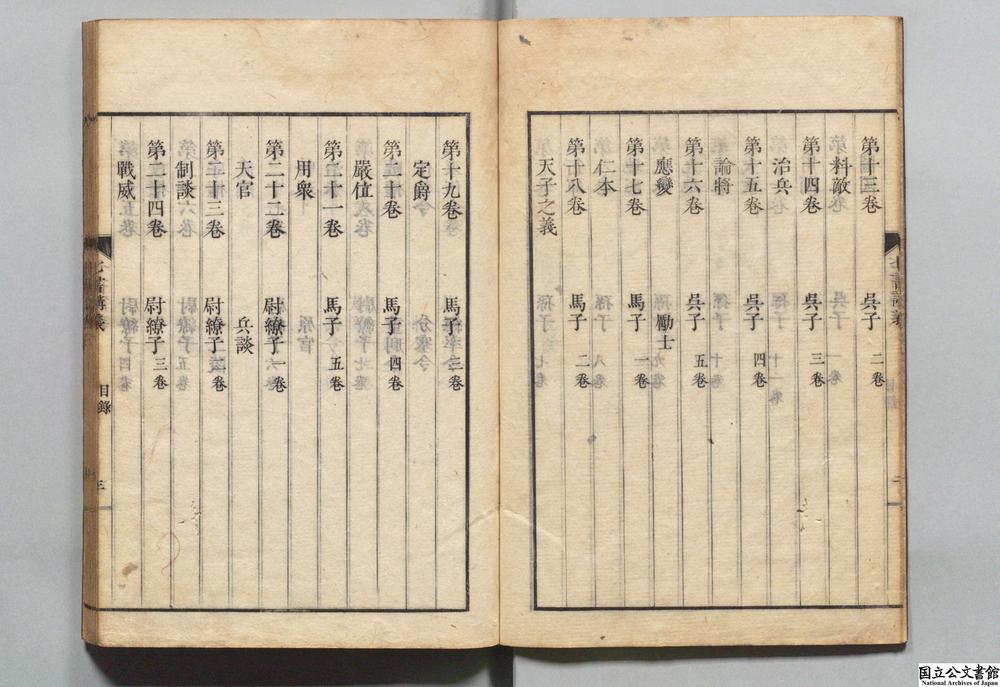 第十三卷 吳子二卷
料敵
第十四卷 吳子三卷
治兵
第十五卷 吳子四卷
論將
第十六卷 吳子五卷
應變 勵士
第十七卷 馬子一卷
仁本
第十八卷 馬子二卷
天子之義
第十九卷 馬子三卷
定爵
第二十卷 馬子四卷
嚴位
第二十一卷 馬子五卷
用衆
第二十二卷 尉繚子一卷
天官 兵談
第二十三卷 尉繚子二卷
制談
第二十四卷 尉繚子三卷
戰威
七書講義 目錄 三
国立公文書館
National Archives of Japan